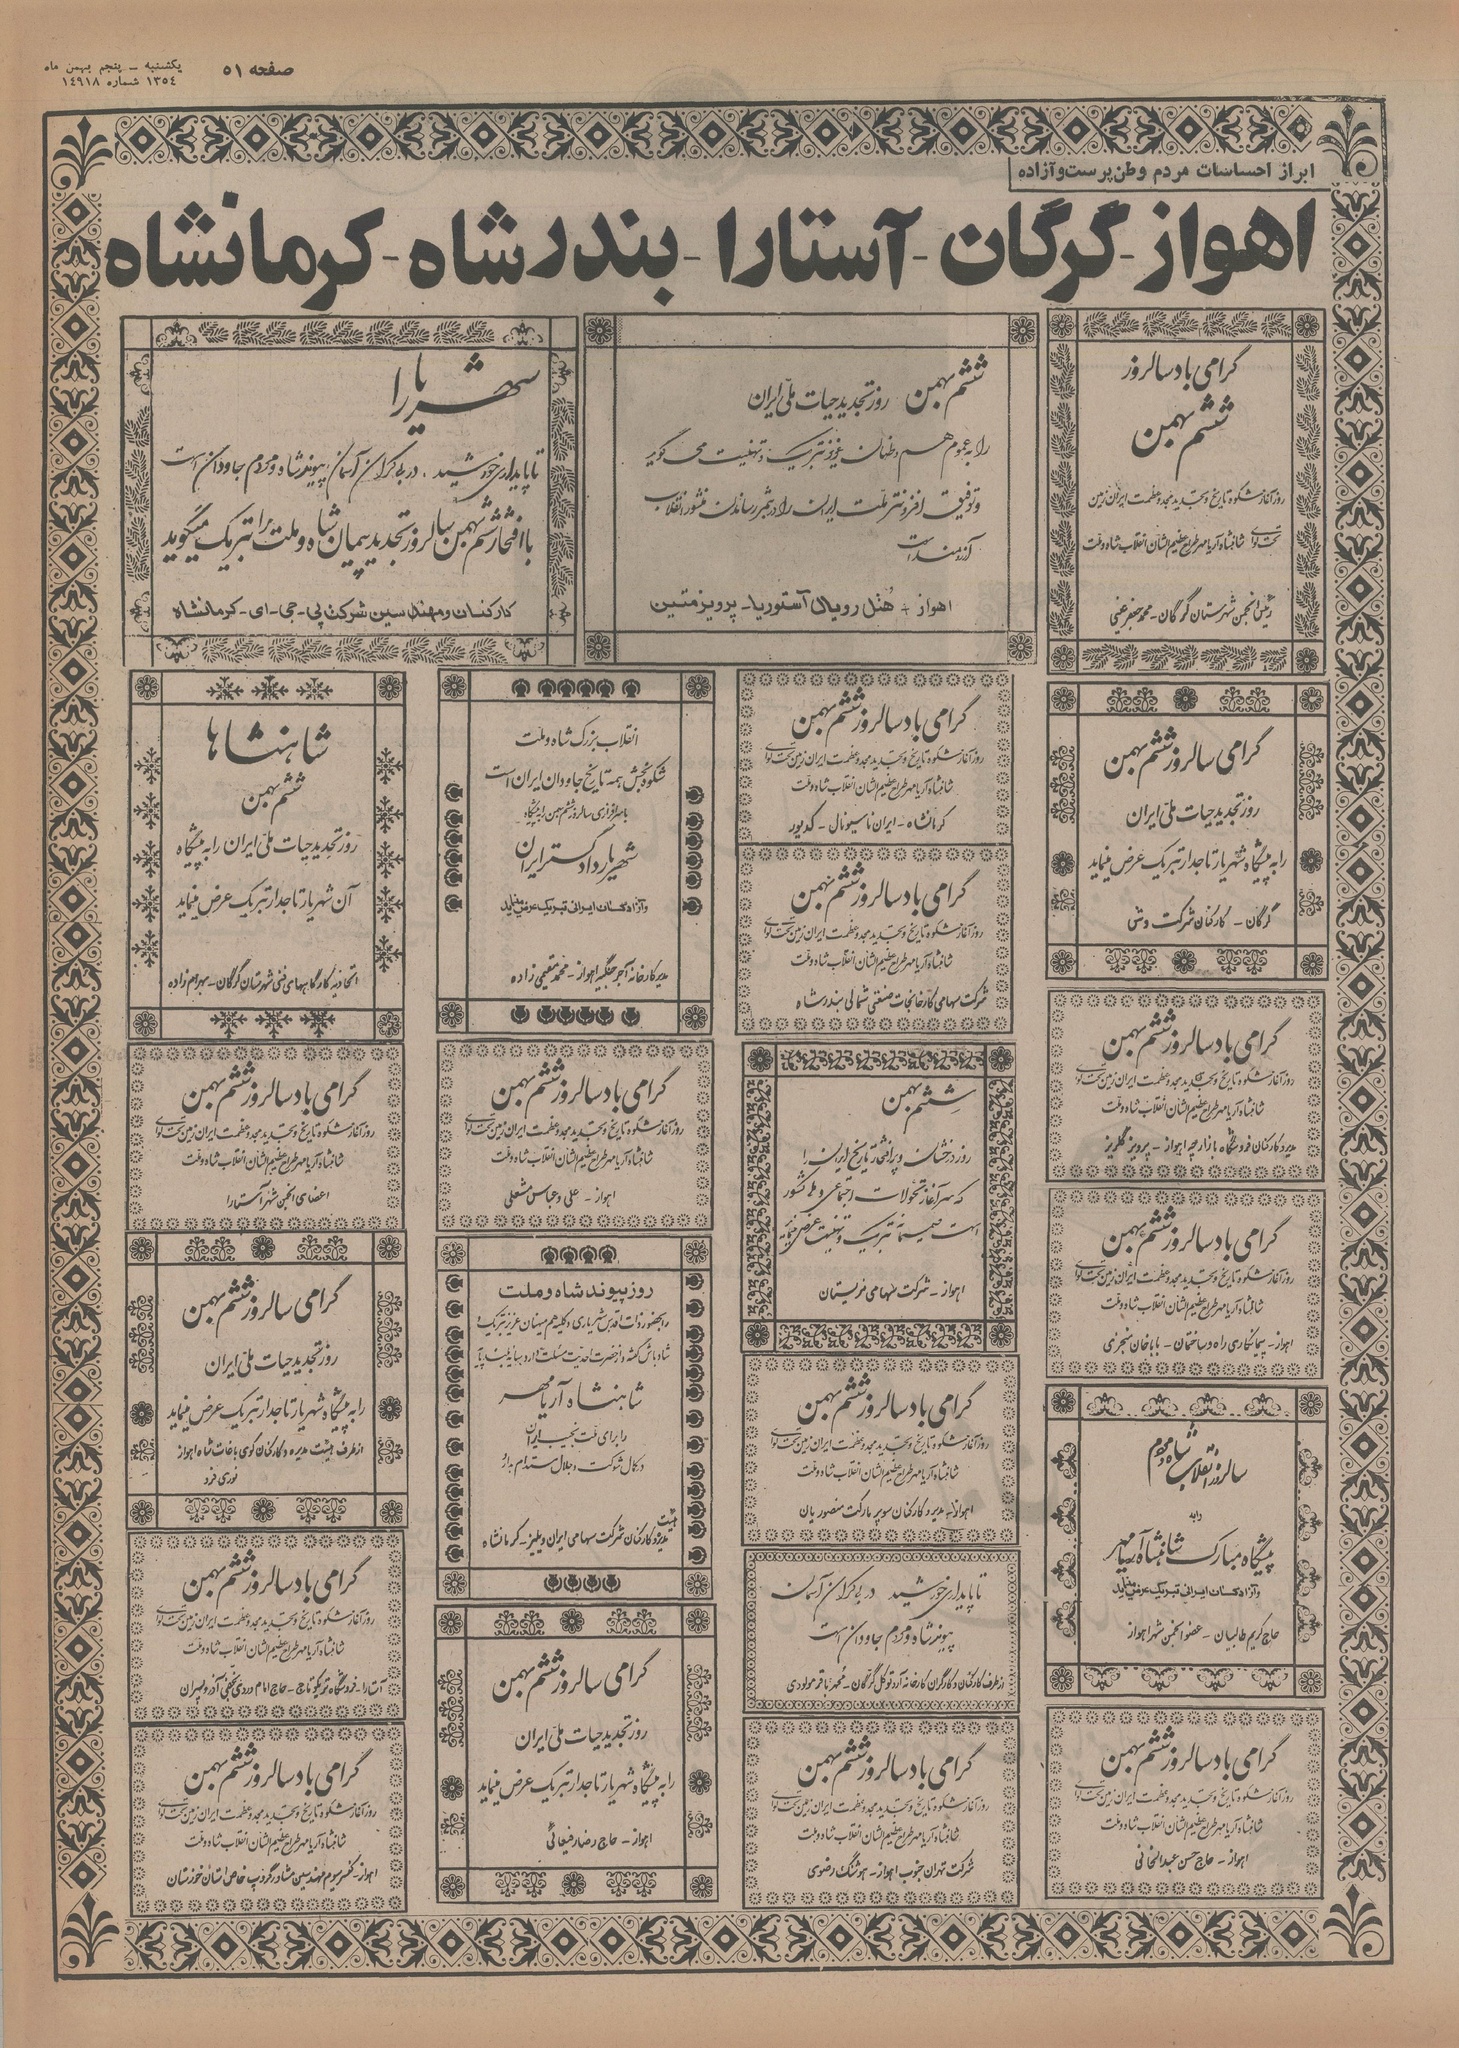 صفحه ۵۱
یکشنبه ـ پنجم بهمن ماه
۱۳۵٤ شماره ۱٤۹۱۸
ابراز احساسات مردم وطن‌پرست و آزاده
اهواز - گرگان - آستارا - بندرشاه - کرمانشاه
گرامی باد سالروز
ششم بهمن
روز آغاز شکوه تاریخ و تجدید مجد و عظمت ایران زمین
تحت لوای شاهنشاه آریامهر طراح عظیم الشان انقلاب شاه و ملت
رئیس انجمن شهرستان گرگان - محمد جعفر
ششم بهمن روز تجدید حیات ملی ایران
را به عموم هم وطنان عزیز تبریک و تهنیت می گوید
و توفیق افزونتر ملت ایران را در بثمر رساندن منشور انقلاب
آرزومند است
اهواز - هتل رویال آستوریا - پرویز متین
شهریارا
تا پایداری خورشید ، در بی کران آسمان پیوند شاه و مردم جاودان است
با افتخار ششم بهمن سالروز تجدید پیمان شاه و ملت را تبریک میگوید
کارکنان و مهندسین شرکت پی - جی - ای - کرمانشاه
گرامی سالروز ششم بهمن
روز تجدید حیات ملی ایران
را به پیشگاه شهریار تاجدار تبریک عرض مینماید
گرگان - کارکنان شرکت
گرامی باد سالروز ششم بهمن
روز آغاز شکوه تاریخ و تجدید مجد و عظمت ایران زمین تحت لوای
شاهنشاه آریامهر طراح عظیم الشان انقلاب شاه و ملت
کرمانشاه - ایران ناسیونال - کدیور
گرامی باد سالروز ششم بهمن
روز آغاز شکوه تاریخ و تجدید مجد و عظمت ایران زمین تحت لوای
شاهنشاه آریامهر طراح عظیم الشان انقلاب شاه و ملت
شرکت سهامی کارخانجات صنعتی شمالی بندرشاه
انقلاب بزرگ شاه و ملت
شکوه بخش همه تاریخ جاودان ایران است
با سرافرازی سالروز ششم بهمن را به پیشگاه
شهریار دادگستر ایران
و آزادگان ایرانی تبریک عرض مینماید
مدیر کارخانه آجر جنگیه اهواز - محمد مقیمی زاده
شاهنشاها
ششم بهمن
روز تجدید حیات ملی ایران را به پیشگاه
آن شهریار تاجدار تبریک عرض مینماید
اتحادیه کارگاههای فنی شهرستان گرگان - بهرام زاده
گرامی باد سالروز ششم بهمن
روز آغاز شکوه تاریخ و تجدید مجد و عظمت ایران زمین تحت لوای
شاهنشاه آریامهر طراح عظیم الشان انقلاب شاه و ملت
مدیر و کارکنان فروشگاه بازارچه اهواز - پرویز گلریز
گرامی باد سالروز ششم بهمن
روز آغاز شکوه تاریخ و تجدید مجد و عظمت ایران زمین تحت لوای
شاهنشاه آریامهر طراح عظیم الشان انقلاب شاه و ملت
اهواز - پیمانکاری راه و ساختمان - باباخان
ششم بهمن
روز درخشان و پرافتخار تاریخ ایران را
که سرآغاز تحولات اجتماعی و ملی کشور
است صمیمانه تبریک و تهنیت عرض مینماید
اهواز - شرکت سهامی
گرامی باد سالروز ششم بهمن
روز آغاز شکوه تاریخ و تجدید مجد و عظمت ایران زمین تحت لوای
شاهنشاه آریامهر طراح عظیم الشان انقلاب شاه و ملت
اهواز - علی و عباس مشعلی
گرامی باد سالروز ششم بهمن
روز آغاز شکوه تاریخ و تجدید مجد و عظمت ایران زمین تحت لوای
شاهنشاه آریامهر طراح عظیم الشان انقلاب شاه و ملت
اعضای انجمن شهر آستارا
روز پیوند شاه و ملت
را بحضور ذات اقدس شهریاری و کلیه هم میهنان عزیز تبریک
شادباش گفته و از حضرت احدیت مسئلت دارد سایه بلند پایه
شاهنشاه آریامهر
را برای ملت نجیب ایران
در کمال شوکت و جلال مستدام بدارد
هیئت مدیره و کارکنان شرکت سهامی ایران ویلیز - کرمانشاه
گرامی سالروز ششم بهمن
روز تجدید حیات ملی ایران
را به پیشگاه شهریار تاجدار تبریک عرض مینماید
از طرف هیئت مدیره و کارکنان کوی باغات شاه اهواز
نوری فرد
سالروز انقلاب شاه و مردم
را به
پیشگاه مبارک شاهنشاه آریامهر
و آزادگان ایرانی تبریک عرض مینماید
حاج کریم طالبیان - عضو انجمن شهر اهواز
گرامی باد سالروز ششم بهمن
روز آغاز شکوه تاریخ و تجدید مجد و عظمت ایران زمین تحت لوای
شاهنشاه آریامهر طراح عظیم الشان انقلاب شاه و ملت
اهواز - مدیر و کارکنان سوپر مارکت منصوریان
تا پایداری خورشید در بی کران آسمان
پیوند شاه و مردم جاودان است
از طرف کارکنان و کارگران کارخانه آرد توکل گرگان - محمد باقر مولودی
گرامی باد سالروز ششم بهمن
روز آغاز شکوه تاریخ و تجدید مجد و عظمت ایران زمین تحت لوای
شاهنشاه آریامهر طراح عظیم الشان انقلاب شاه و ملت
آستارا - فروشگاه - حاج امام وردی
گرامی سالروز ششم بهمن
روز تجدید حیات ملی ایران
را به پیشگاه شهریار تاجدار تبریک عرض مینماید
اهواز - حاج رضا رفیعائی
گرامی باد سالروز ششم بهمن
روز آغاز شکوه تاریخ و تجدید مجد و عظمت ایران زمین تحت لوای
شاهنشاه آریامهر طراح عظیم الشان انقلاب شاه و ملت
اهواز - حاج حسن عبدالخانی
گرامی باد سالروز ششم بهمن
روز آغاز شکوه تاریخ و تجدید مجد و عظمت ایران زمین تحت لوای
شاهنشاه آریامهر طراح عظیم الشان انقلاب شاه و ملت
شرکت تهران جنوب اهواز - هوشنگ رضوی
گرامی باد سالروز ششم بهمن
روز آغاز شکوه تاریخ و تجدید مجد و عظمت ایران زمین تحت لوای
شاهنشاه آریامهر طراح عظیم الشان انقلاب شاه و ملت
اهواز - کنسرسیوم مهندسین مشاور خوزستان